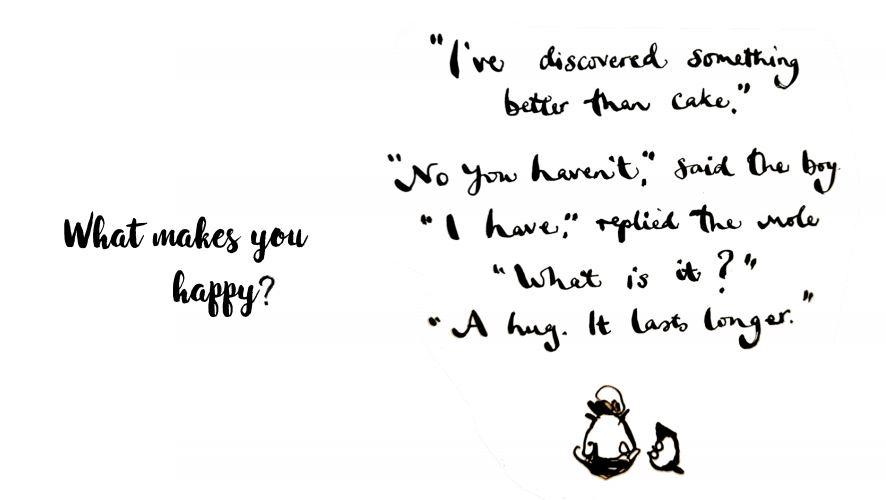 What makes you
happy?
"I've discovered something
better than cake."
"No you haven't," said the boy.
"I have," replied the mole
"What is it?"
"A hug. It lasts longer."